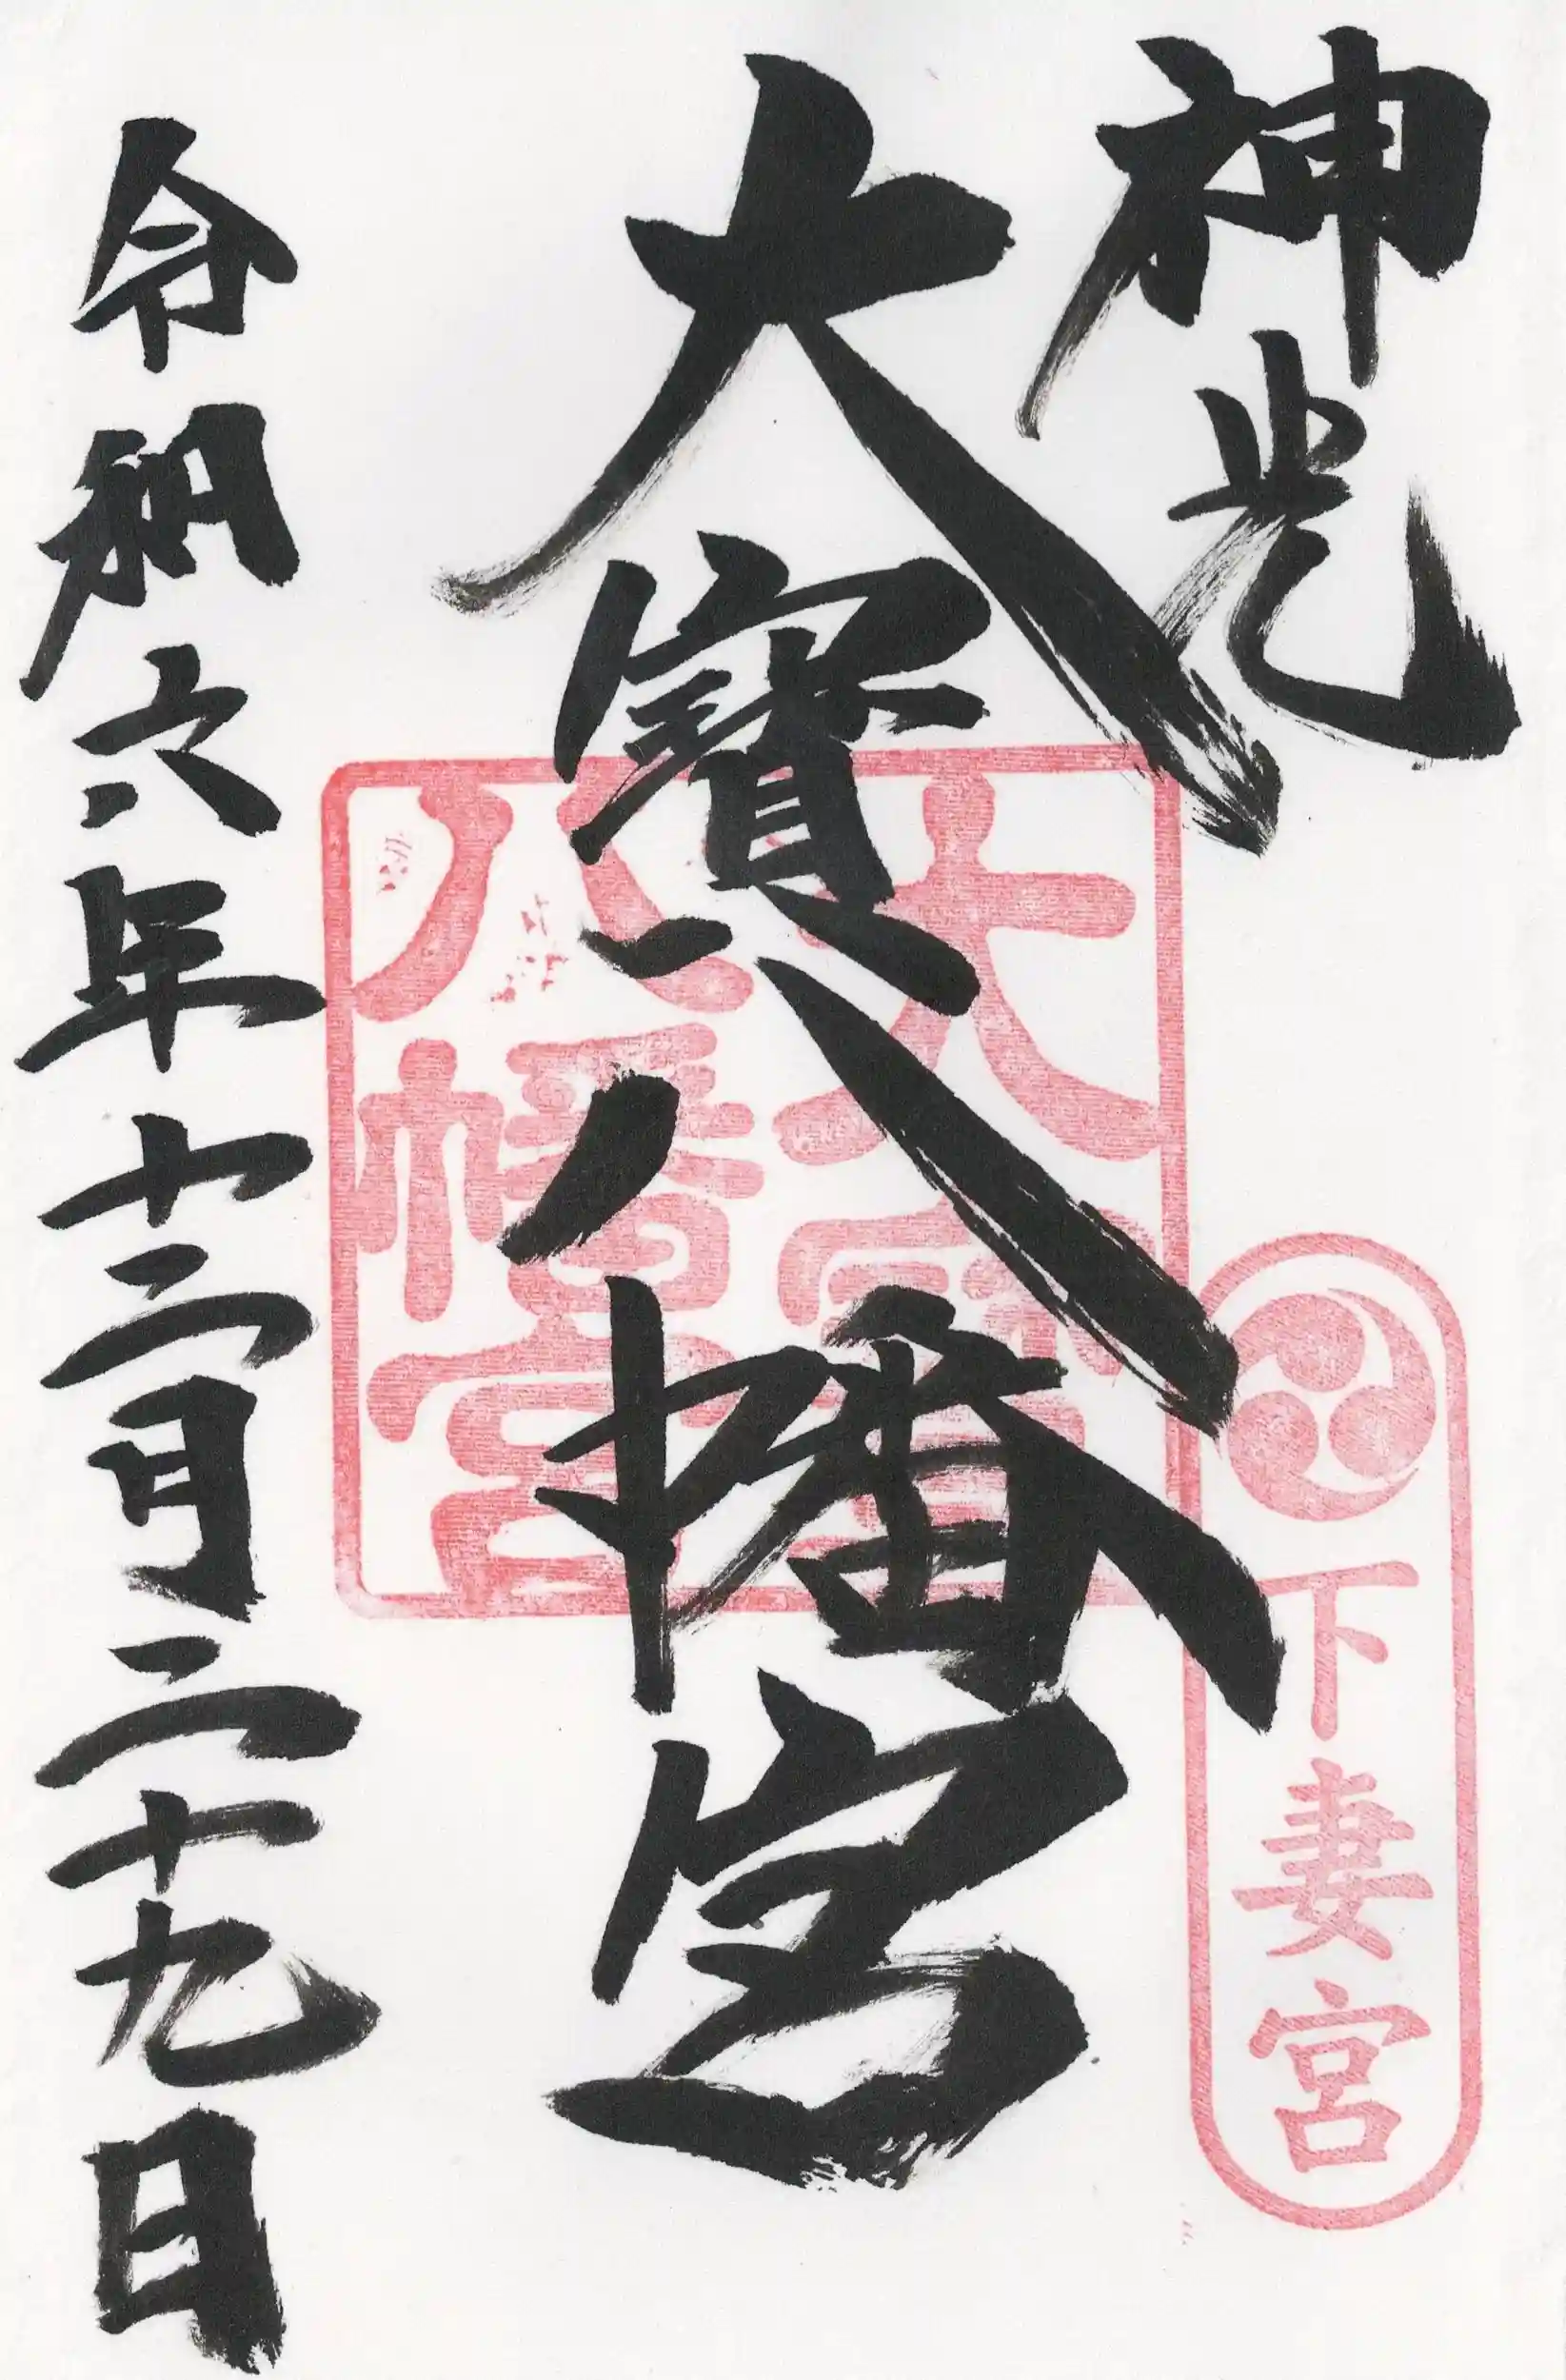 神光
下妻宮
大寶八幡宮
大宝八幡宮
令和六年十二月二十九日